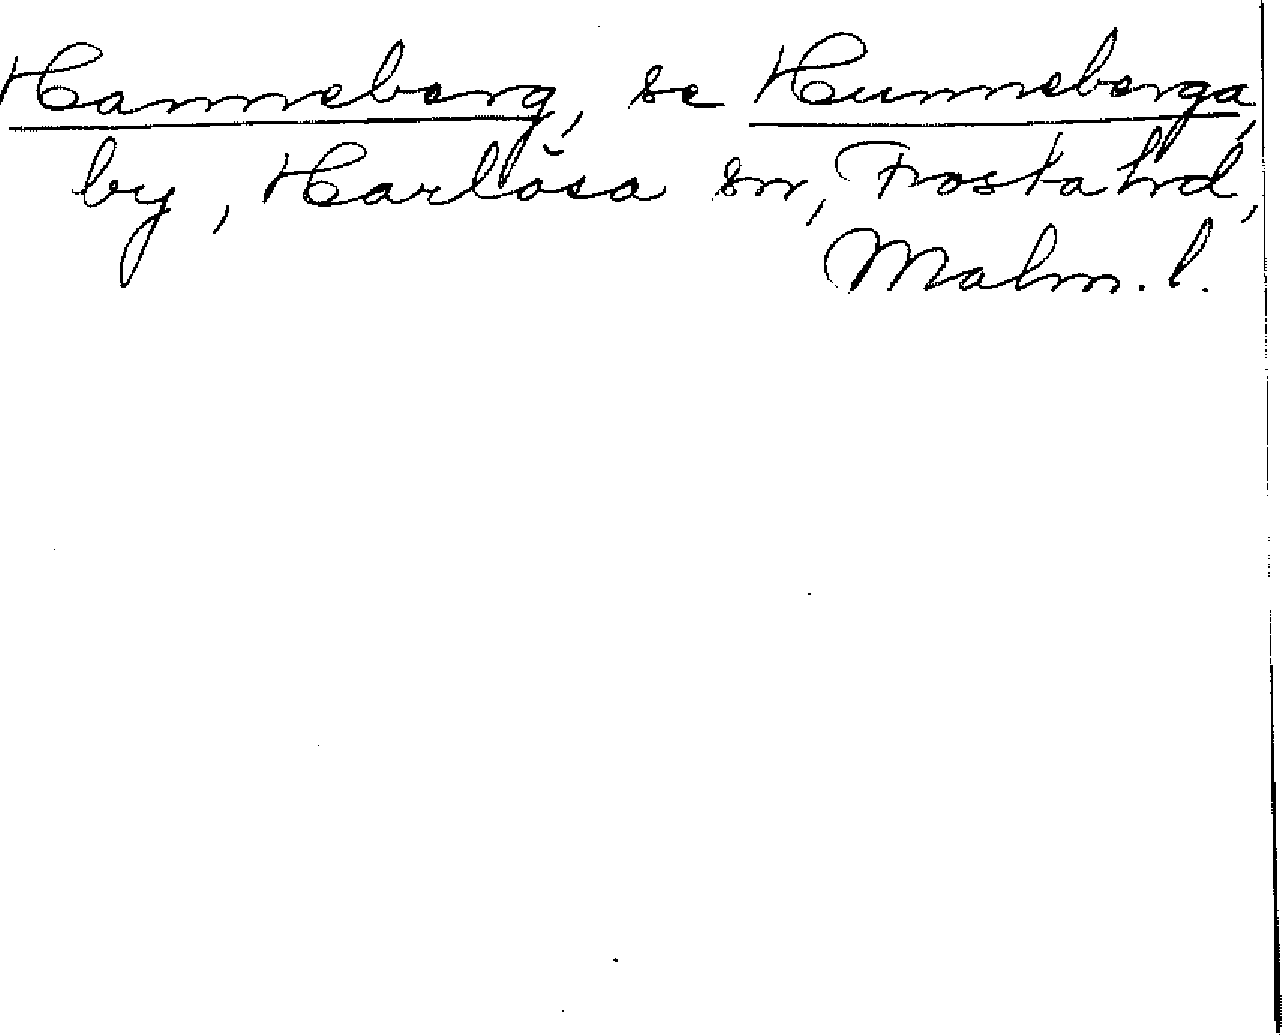 Hanneberg, se Hunneberga,
by, Harlösa sn, Frosta hd,
Malm. l.